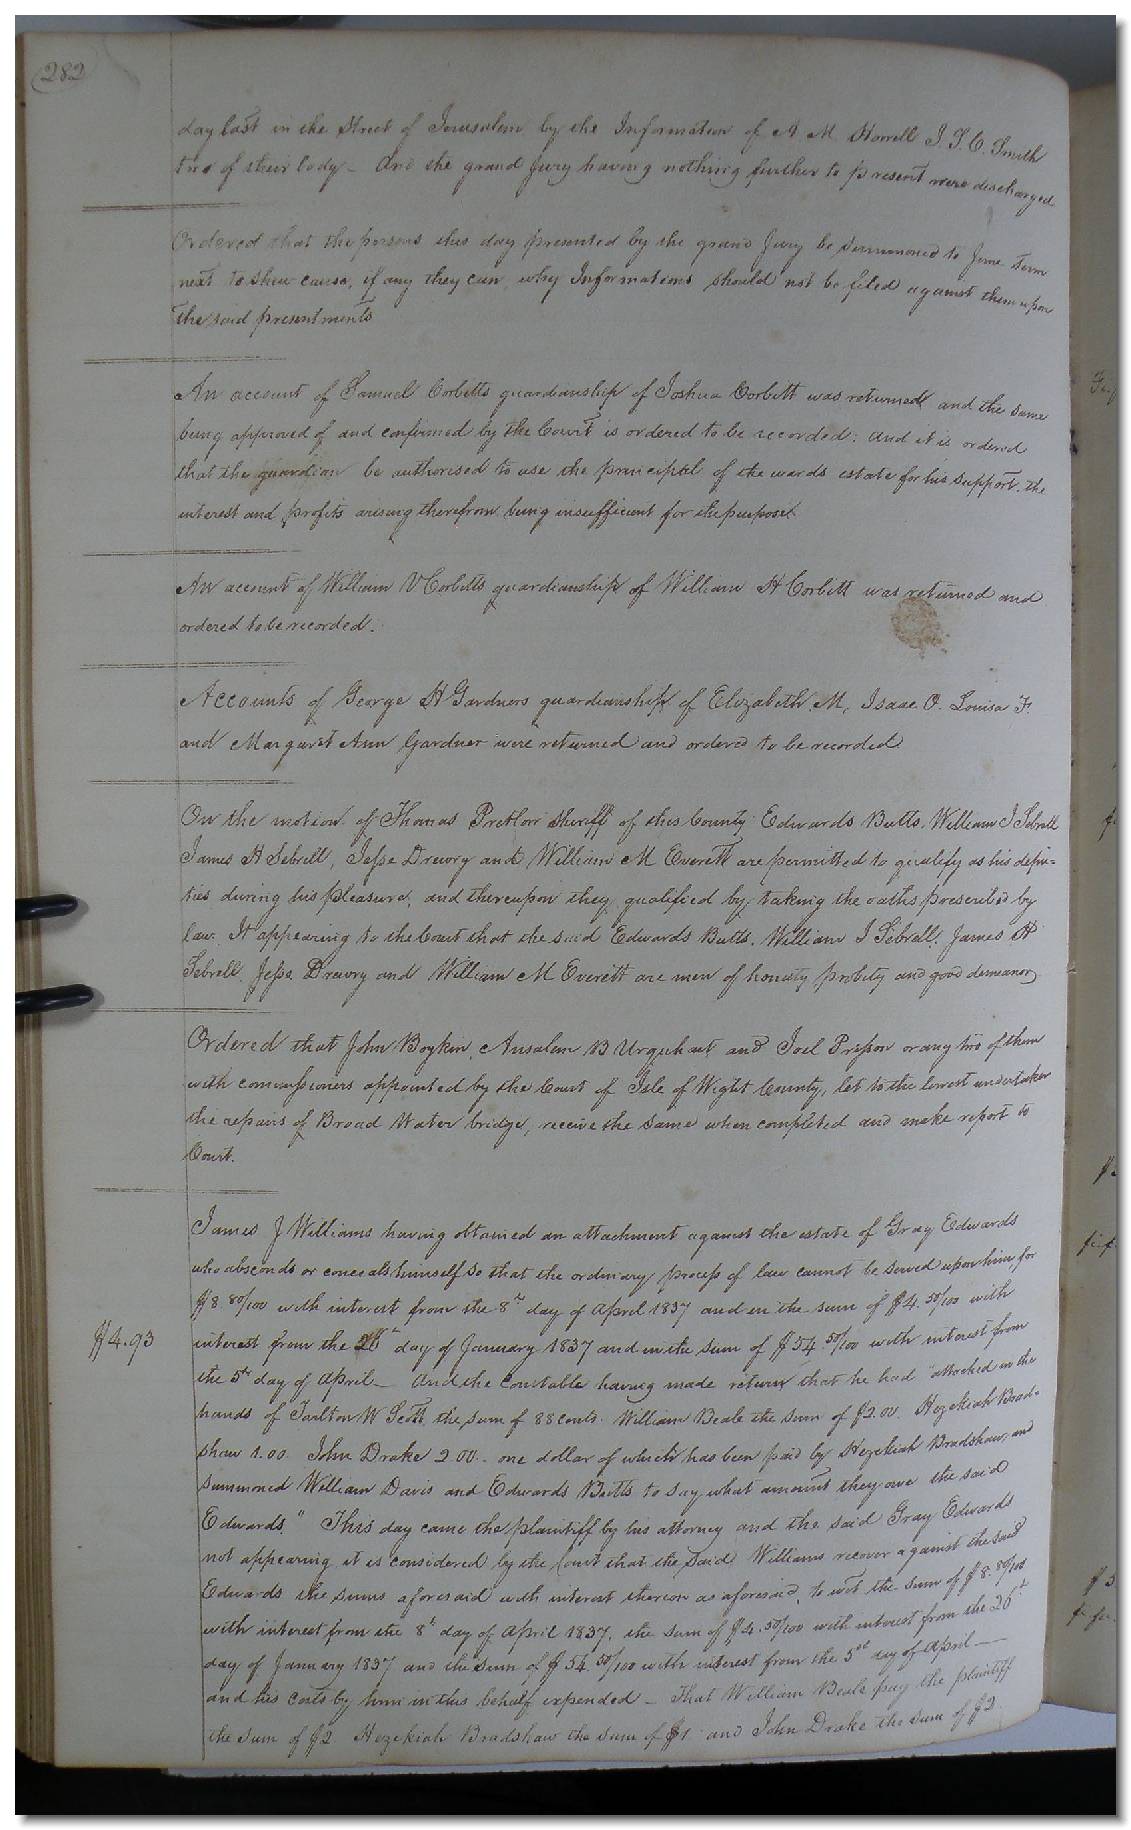 282
day last in the Street of Jerusalem by the Information of A. M. Harrell J. T. C. Smith
two of their body - And the grand Jury having nothing further to present were discharged
Ordered that the persons this day presented by the grand Jury be summoned to June Term
next to shew cause, if any they can why Informations should not be filed against them upon
the said presentments
An account of Samuel Corbetts guardianship of Joshua Corbett was returned and the same
being approved of and confirmed by the Court is ordered to be recorded: and it is ordered
that the guardian be authorised to use the principal of the wards estate for his support, the
interest and profits arising therefrom being insufficient for the purpose
An account of William V Corbetts guardianship of William H Corbett was returned and
ordered to be recorded.
Accounts of George H Gardners guardianship of Elizabeth M, Isaac O. Louisa F.
and Margaret Ann Gardner were returned and ordered to be recorded
On the motion of Thomas Pretlow sheriff of this County Edwards Butts, William J Sebrell
James H Sebrell, Jesse Drewry and William M Everett are permitted to qualify as his depu-
ties during his pleasure, and thereupon they qualified by taking the oaths prescribed by
law. It appearing to the Court that the said Edwards Butts, William J Sebrell, James H
Sebrell, Jesse Drewry and William M Everett are men of honesty probity and good demeanor
Ordered that John Boykin, Ansalem B Urquhart and Joel or any two of them
with commissioners appointed by the Court of Isle of Wight County, let to the lowest undertaker
the repairs of Broad Water bridge, receive the same when completed and make report to
Court.
James J Williams having obtained an attachment against the estate of Gray Edwards
who absconds or conceals himself so that the ordinary process of law cannot be served upon him, for
$8.80/100 with interest from the 8th day of April 1837 and in the sum of $4.50/100 with
$4.93
interest from the 26th day of January 1837 and in the sum of $54.50/100 with interest from
the 5th day of April - And the Constable having made return that he had "attached in the
hands of Tarlton W Scott, the sum of 88 cents. William Beale the sum of $2.00. Hezekiah Brad-
shaw 1.00. John Drake 2.00 - one dollar of which has been paid by Hezekiah Bradshaw, and
summoned William Davis and Edwards Butts to say what amount they owe the said
Edwards." This day came the plaintiff by his attorney and the said Gray Edwards
not appearing it is considered by the Court that the said Williams recover against the said
Edwards the sums aforesaid with interest thereon as aforesaid, to wit the sum of $8.80/100
with interest from the 8th day of April 1837, the sum of $4.50/100 with interest from the 26th
day of January 1837 and the sum of $54.50/100 with interest from the 5th day of April -
and his costs by him in this behalf expended - That William Beale pay the plaintiff
the sum of $2 Hezekiah Bradshaw the sum of $1 and John Drake the sum of $2